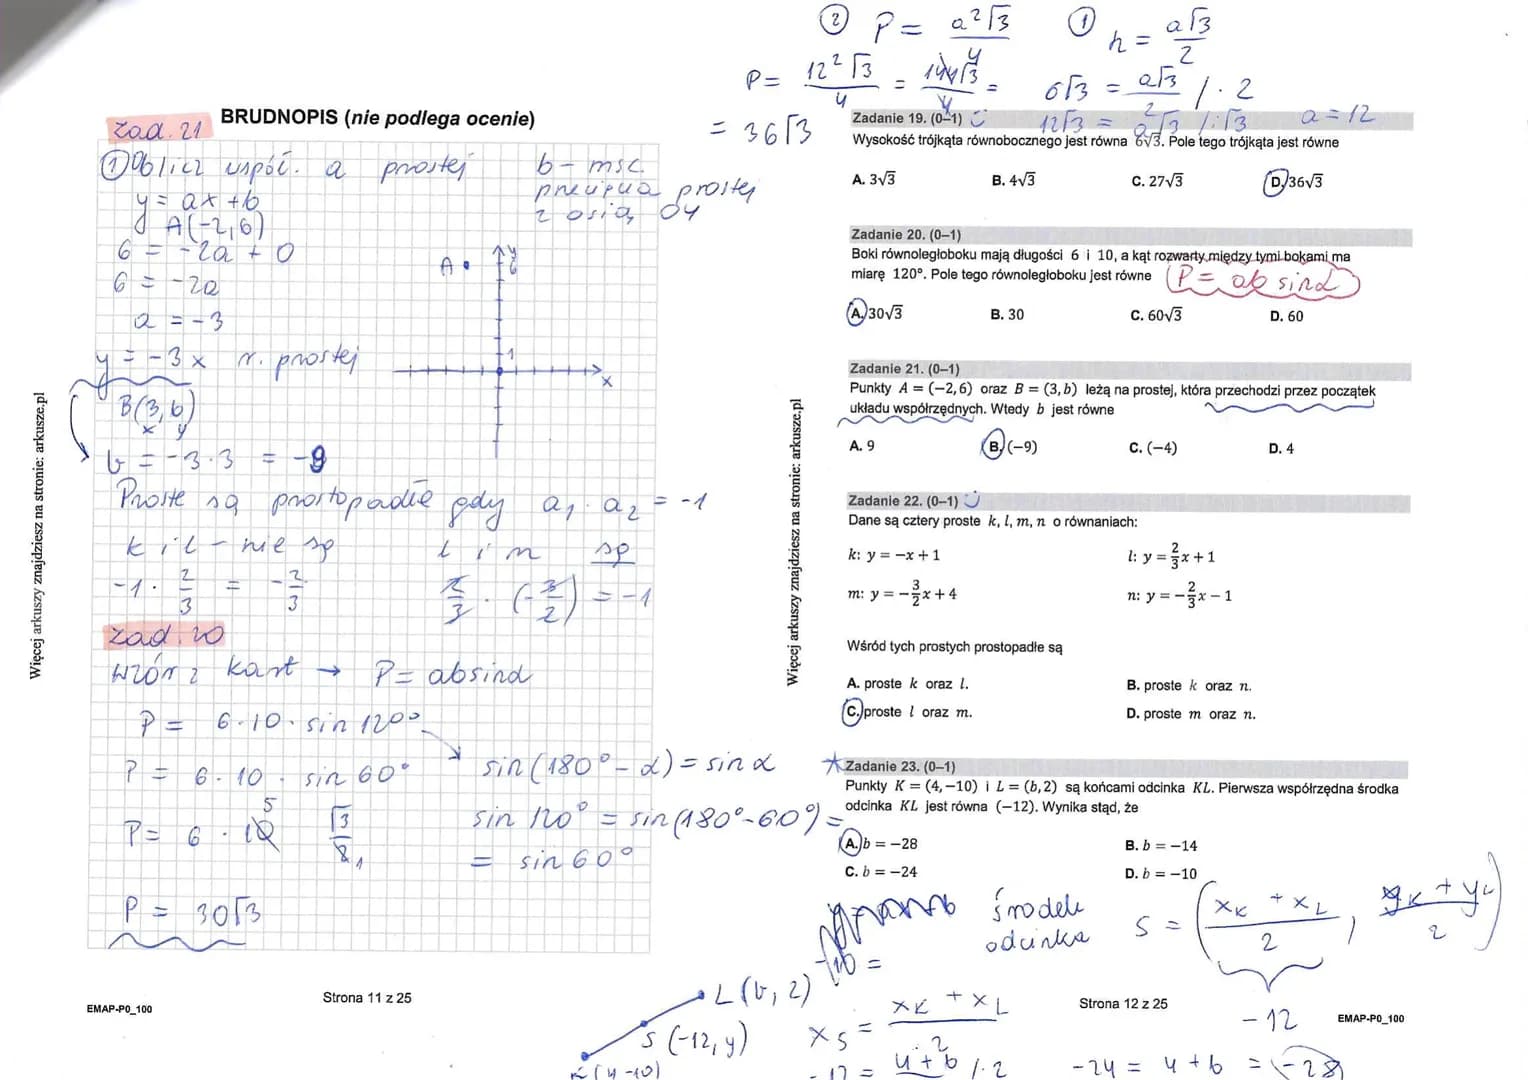 ② P = a²√3 / 4
① h = a√3 / 2
P = 12²√3 / 4 = 144√3 / 4 =
= 36√3
6√3 = a√3 / 2 /·2
12√3 = a√3 /:√3 a = 12
zad. 21
BRUDNOPIS (nie podlega ocenie)
① Oblicz współ. a prostej
y = ax + b
A(-2,6)
6 = -2a + 0
6 = -2a
a = -3
y = -3x r. prostej
B(3, b)
x y
b = -3·3 = -9
b - msc.
przecięcia prostej
z osią OY
A
y
6
1
x
Proste są prostopadłe gdy a₁·a₂ = -1
k i l - nie są
-1 · 2/3 = -2/3
l i m są
2/3 · (-3/2) = -1
zad. 20
wzór z kart → P = absinα
P = 6·10·sin 120°
P = 6·10·sin 60°
P = 6 · 10 5 √3 / 2 1
P = 30√3
sin(180° - α) = sin α
sin 120° = sin(180°-60°) =
= sin 60°
Więcej arkuszy znajdziesz na stronie: arkusze.pl
EMAP-P0_100
Strona 11 z 25
Zadanie 19. (0–1)
Wysokość trójkąta równobocznego jest równa 6√3. Pole tego trójkąta jest równe
A. 3√3 B. 4√3 C. 27√3 D. 36√3
Zadanie 20. (0–1)
Boki równoległoboku mają długości 6 i 10, a kąt rozwarty między tymi bokami ma
miarę 120°. Pole tego równoległoboku jest równe P = ab sinα
A. 30√3 B. 30 C. 60√3 D. 60
Zadanie 21. (0–1)
Punkty A = (−2, 6) oraz B = (3, b) leżą na prostej, która przechodzi przez początek
układu współrzędnych. Wtedy b jest równe
A. 9 B. (−9) C. (−4) D. 4
Zadanie 22. (0–1)
Dane są cztery proste k, l, m, n o równaniach:
k: y = −x + 1 l: y = 2/3x + 1
m: y = −3/2x + 4 n: y = −2/3x − 1
Wśród tych prostych prostopadłe są
A. proste k oraz l. B. proste k oraz n.
C. proste l oraz m. D. proste m oraz n.
Zadanie 23. (0–1)
Punkty K = (4, −10) i L = (b, 2) są końcami odcinka KL. Pierwsza współrzędna środka
odcinka KL jest równa (−12). Wynika stąd, że
A. b = −28 B. b = −14
C. b = −24 D. b = −10
środek
odcinka
S = (xK + xL / 2, yK + yL / 2)
-12
L(b, 2)
S(-12, y)
K(4 -10)
xS = xK + xL / 2
-12 = 4 + b /·2
-24 = 4 + b = -28
Więcej arkuszy znajdziesz na stronie: arkusze.pl
Strona 12 z 25
EMAP-P0_100